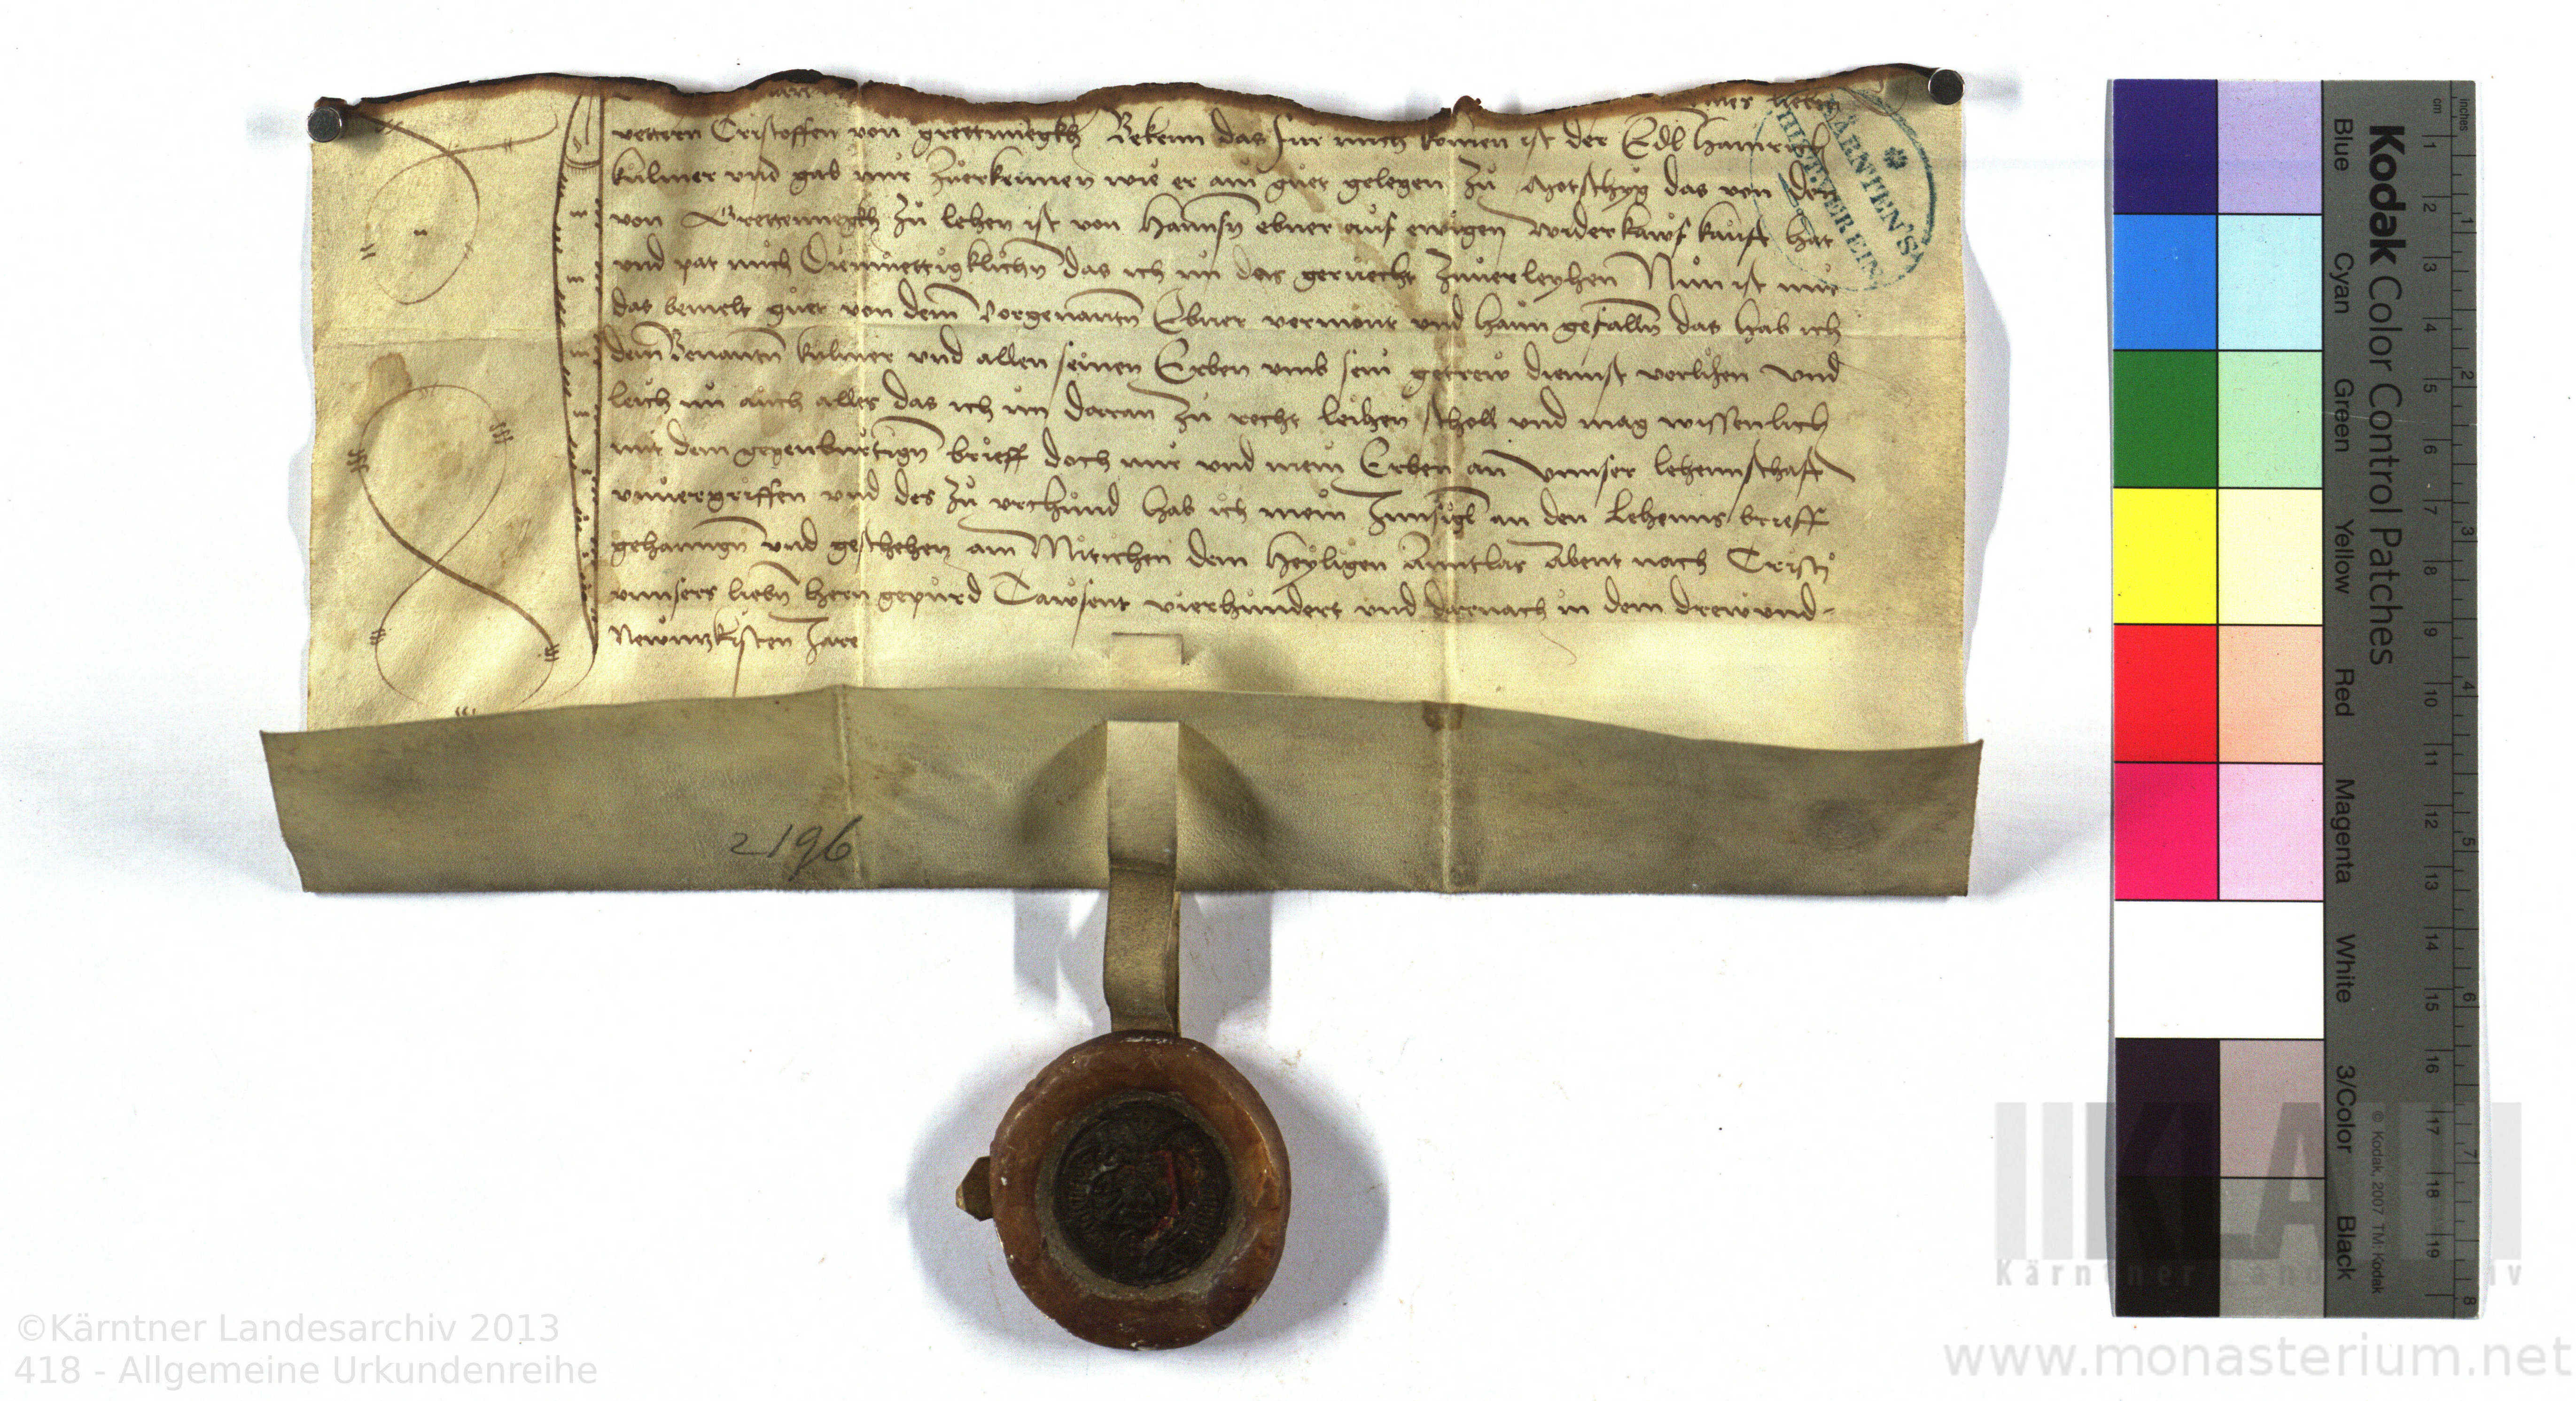 mes lieben
vettern Cristoffen von grettnnegkh Beken das fur mich komen ist der Edl Hainreich
kulmer vnd gab mir zuerkennen wie er ain guet gelegen zu das von den
von Grettennegkh zu lehen ist von Hannsn ebner auf ewigen widerkawf kauft hat
vnd pat mich diemuettigklichn das ich im das geruecht zuuerleyhen Nun ist mir
das bemelt guet von dem vorgenantn Ebner vermont vnd haim gefalln das hab ich
dem Benantn kulmer vnd allen seinen Erben vmb sein getrew diennst verlihen vnd
leich im auch alles das ich im daran zu recht leihen scholl vnd mag wissenlich
mit dem gegenburtign brieff doch mir vnd mein Erben an vnnser lehennschafft
vnuergriffen vnd des zu vrchund hab ich mein Innsigl an den Lehenns brieff
gehanngn vnd geschehen am Mitichen dem Heyligen Anntlas Abent nach Cristi
vnnsers liebn hern gepurd Tawsent vierhundert vnd darnach in dem drewvnd-
Newnzkisten Jare
KÄRNTEN'S
HIST. VEREIN
2196
Kodak Color Control Patches
Blue Cyan Green Yellow Red Magenta White 3/Color Black
© Kodak, 2007 TM: Kodak
cm 1 2 3 4 5 6 7 8 9 10 11 12 13 14 15 16 17 18 19
inches 1 2 3 4 5 6 7 8
KLA
Kärntner Landesarchiv
©Kärntner Landesarchiv 2013
418 - Allgemeine Urkundenreihe
www.monasterium.net